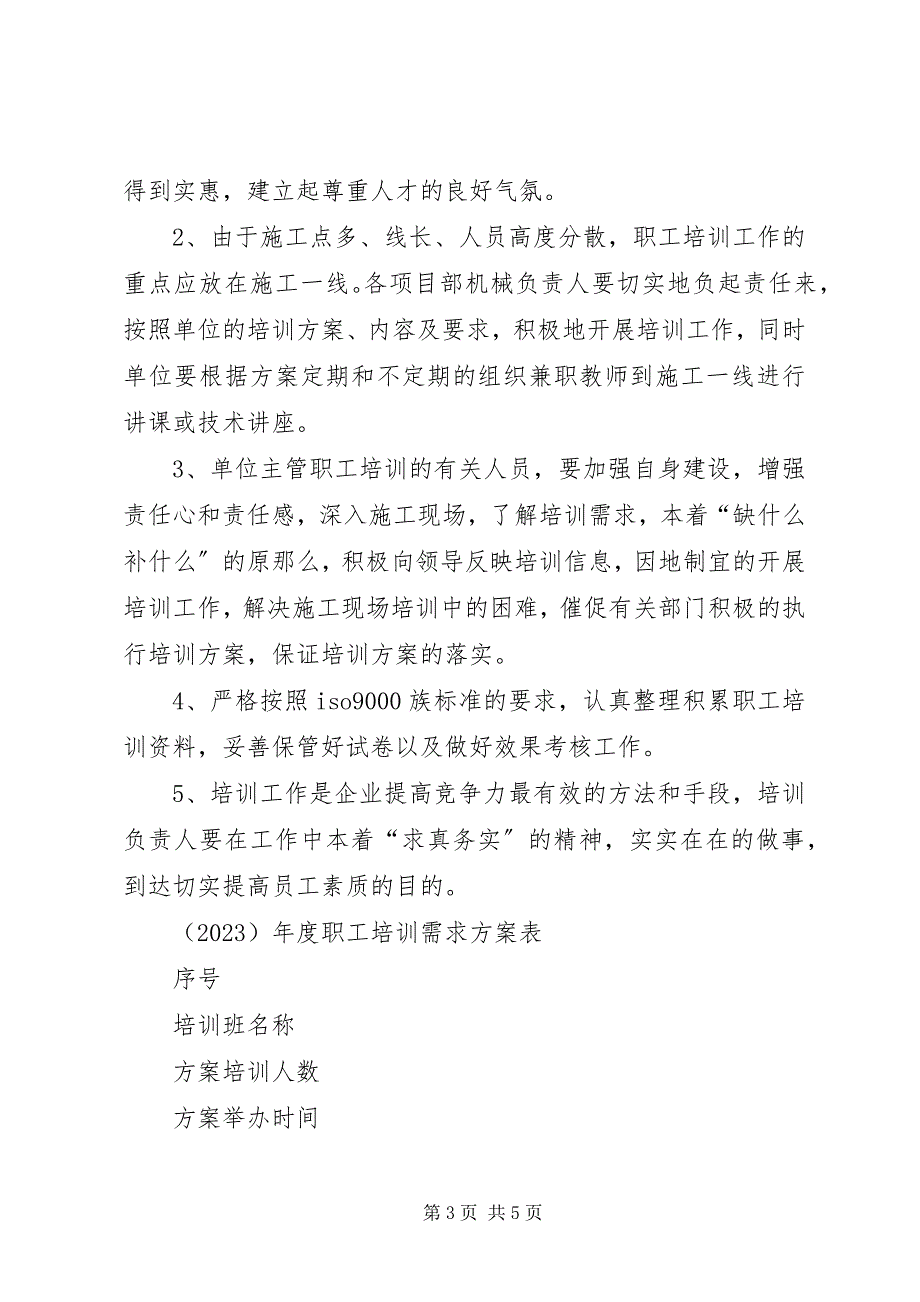 得到实惠，建立起尊重人才的良好气氛。
2、由于施工点多、线长、人员高度分散，职工培训工作的
重点应放在施工一线。各项目部机械负责人要切实地负起责任来，
按照单位的培训方案、内容及要求，积极地开展培训工作，同时
单位要根据方案定期和不定期的组织兼职教师到施工一线进行
讲课或技术讲座。
3、单位主管职工培训的有关人员，要加强自身建设，增强
责任心和责任感，深入施工现场，了解培训需求，本着“缺什么
补什么〞的原那么，积极向领导反映培训信息，因地制宜的开展
培训工作，解决施工现场培训中的困难，催促有关部门积极的执
行培训方案，保证培训方案的落实。
4、严格按照 iso9000 族标准的要求，认真整理积累职工培
训资料，妥善保管好试卷以及做好效果考核工作。
5、培训工作是企业提高竞争力最有效的方法和手段，培训
负责人要在工作中本着“求真务实〞的精神，实实在在的做事，
到达切实提高员工素质的目的。
（2023）年度职工培训需求方案表
序号
培训班名称
方案培训人数
方案举办时间
第 3 页 共 5 页